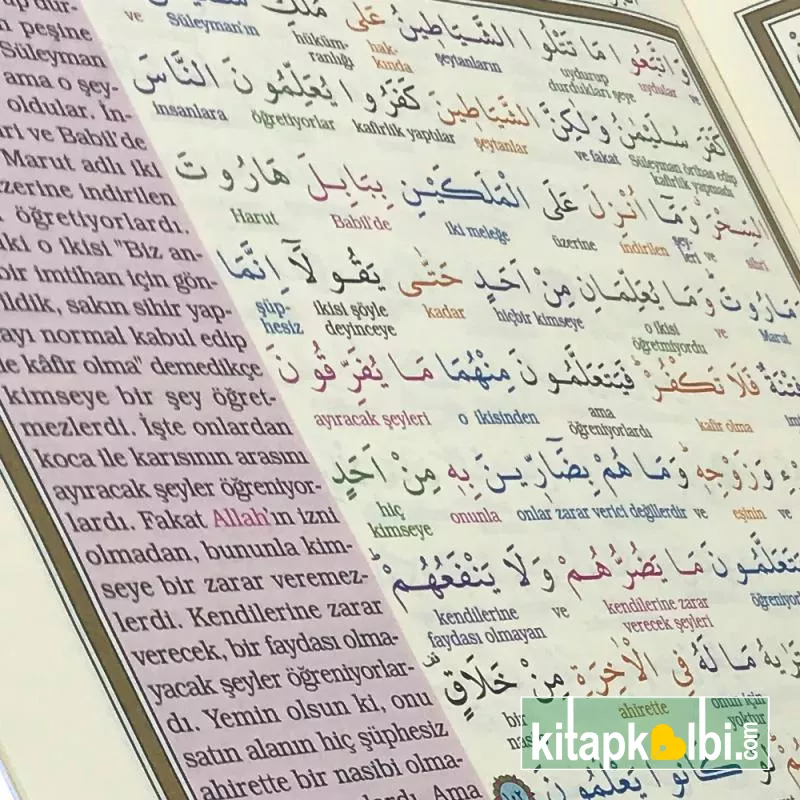 peşine
Süleyman
ama o şey-
oldular. İn-
ve Babil'de
Marut adlı iki
üzerine indirilen
öğretiyorlardı.
o ikisi "Biz an-
bir imtihan için gön-
dildik, sakın sihir yap-
ayı normal kabul edip
kâfir olma" demedikçe
kimseye bir şey öğret-
mezlerdi. İşte onlardan
koca ile karısının arasını
ayıracak şeyler öğreniyor-
lardı. Fakat Allah'ın izni
olmadan, bununla kim-
seye bir zarar veremez-
lerdi. Kendilerine zarar
verecek, bir faydası olma-
yacak şeyler öğreniyorlar-
dı. Yemin olsun ki, onu
satın alanın hiç şüphesiz
ahirette bir nasibi olma-
Ama
وَاتَّبَعُوا مَا تَتْلُوا الشَّيَاطِينُ عَلَى مُلْكِ
ve uydular uydurup durdukları şeye şeytanların hak-kında hüküm-ranlığı Süleyman'ın ve
كَفَرَ سُلَيْمٰنُ وَلٰكِنَّ الشَّيَاطِينَ كَفَرُوا يُعَلِّمُونَ النَّاسَ
ve fakat şeytanlar kafirlik yaptılar öğretiyorlar insanlara
السِّحْرَ وَمَا اُنْزِلَ عَلَى الْمَلَكَيْنِ بِبَابِلَ هَارُوتَ
sihri ve şey-leri indirilen üzerine iki meleğe Babil'de Harut
مَارُوتَ وَمَا يُعَلِّمَانِ مِنْ اَحَدٍ حَتّٰى يَقُولَا اِنَّمَا
Marut ve o ikisi öğretmiyordu hiçbir kimseye kadar ikisi şöyle deyinceye şüp-hesiz
فِتْنَةٌ فَلَا تَكْفُرْ فَيَتَعَلَّمُونَ مِنْهُمَا مَا يُفَرِّقُونَ
kafir olma ama öğreniyorlardı o ikisinden ayıracak şeyleri
وَزَوْجِهِ وَمَا هُمْ بِضَارِّينَ بِهِ مِنْ اَحَدٍ
ve eşinin ve onlar zarar verici değillerdir onunla hiç kimseye
يَتَعَلَّمُونَ مَا يَضُرُّهُمْ وَلَا يَنْفَعُهُمْ
kendilerine zarar verecek şeyleri ve kendilerine faydası olmayan
مَا لَهُ فِي الْاٰخِرَةِ مِنْ خَلَاقٍ
onun için yoktur ahirette bir
لَوْ كَانُوا يَعْلَمُونَ
١٠٢
kitapkalbi.com